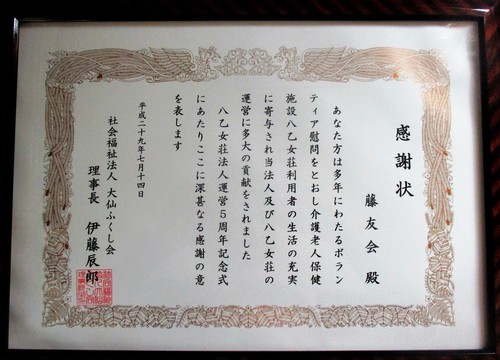 感謝状
藤友会 殿
あなた方は多年にわたるボラン
ティア慰問をとおし介護老人保健
施設八乙女荘利用者の生活の充実
に寄与され当法人及び八乙女荘の
運営に多大の貢献をされました
八乙女荘法人運営5周年記念式
にあたりここに深甚なる感謝の意
を表します
平成二十九年七月十四日
社会福祉法人 大仙ふくし会
理事長 伊藤辰郎